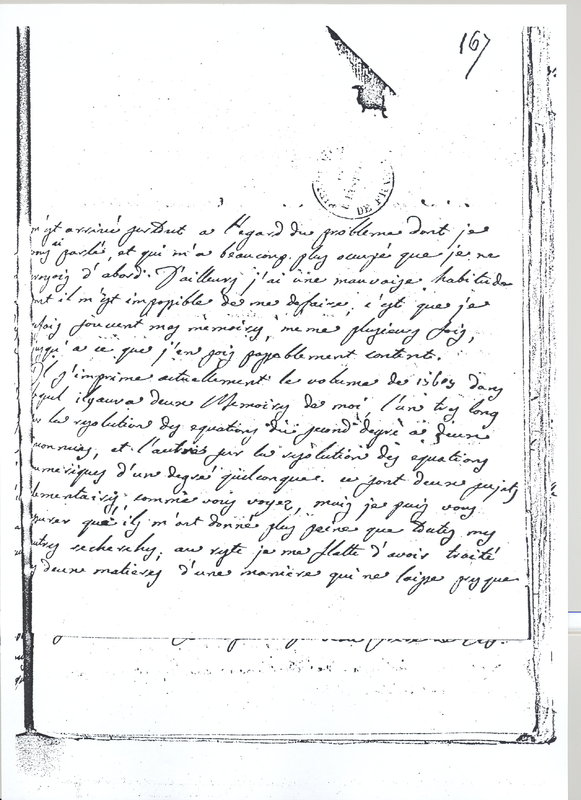 167
DE FRA
m'est arrivé surtout a l'egard du probleme dont je
ai parlé, et qui m'a beaucoup plus occupé que je ne
croyois d'abord. D'ailleurs j'ai une mauvaise habitude
dont il m'est impossible de me defaire, c'est que je
refais souvent mes mémoires, meme plusieurs fois,
jusqu'a ce que j'en sois passablement content.
Il s'imprime actuellement le volume de dans
lequel il y aura deux Memoires de moi, l'un tres long
sur la resolution des equations du second degré a deux
inconnues, et l'autre sur la resolution des equations
numeriques d'un degré quelconque. ce sont deux sujets
elementaires, comme vous voyez, mais je puis vous
assurer qu'ils m'ont donné plus peine que toutes mes
autres recherches; au reste je me flatte d'avoir traité
deux matieres d'une manière qui ne laisse presque